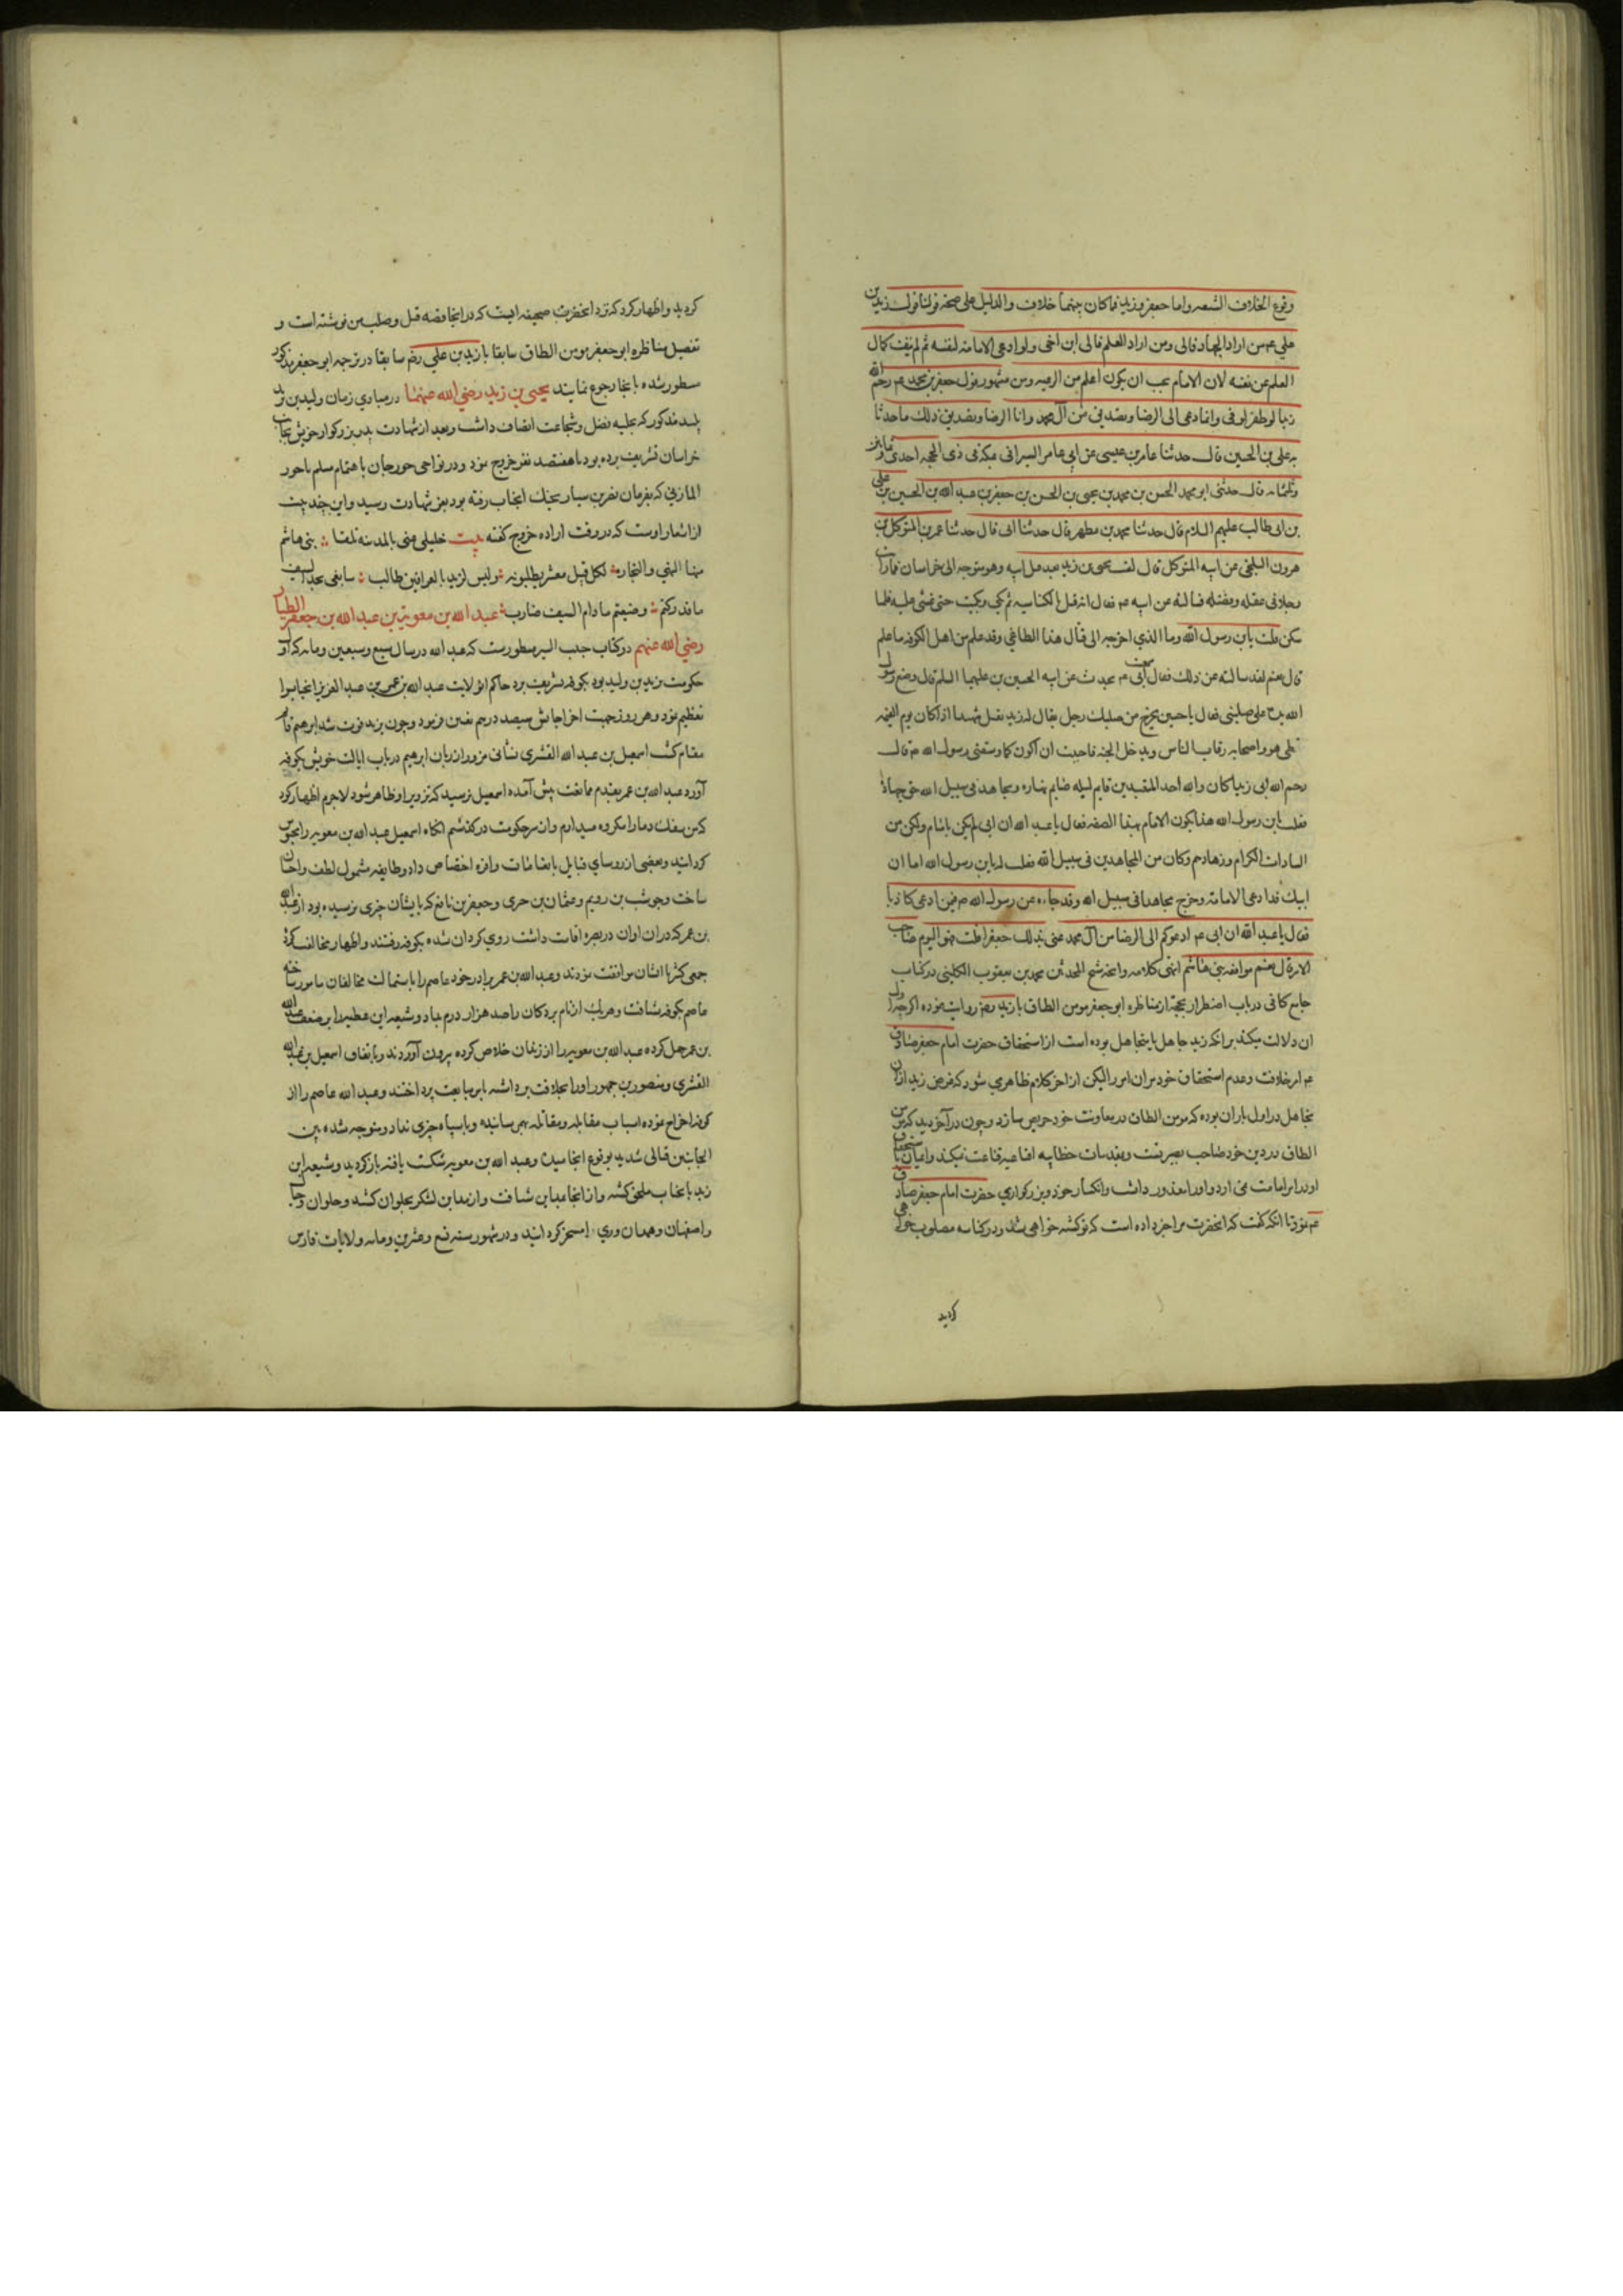 وقوع الخلاف الشيعه واما جعفر وزيد فما كان بينهما خلاف والدليل على صحة قولنا قول زيد بن
علي عم من اراد الجهاد فالى ومن اراد العلم فالى ابن اخى ولو ادعى الامامة لنفسه ثم لم ينف كمال
العلم عن نفسه لان الامام يجب ان يكون اعلم من الرعيه ومن مشهور قول جعفر بن محمد عم رحم الله
زيدا لو ظفر لوفى وانما دعى الى الرضا من آل محمد وانا الرضا وتصديق ذلك ما حدثنا
به علي بن الحسين قال حدثنا عامر بن عيسى بن ابي عامر السيرافى بمكة فى ذى الحجه احدى وثمانين
وثلثمائه قال حدثنى ابو محمد الحسن بن محمد بن يحيى بن الحسن بن جعفر بن عبد الله بن الحسين بن على
بن ابى طالب عليهم السلام قال حدثنا محمد بن مطهر قال حدثنا ابى قال حدثنا عمر بن المتوكل بن
هرون البلخى عن ابيه المتوكل قال لقيت يحيى بن زيد بعد قتل ابيه وهو متوجه الى خراسان فما رايت
رجلا فى عقله وفضله فسالته عن ابيه عم فقال انه قتل بالكناسه ثم بكى وبكيت حتى غشى عليه فلما
سكن قلت يا بن رسول الله وما الذي اخرجه الى قتال هذا الطاغي وقد علم من اهل الكوفه ما علم
قال نعم لقد سالته عن ذلك فقال ابى عم يحدث عن ابيه الحسين بن على عليهما السلم قال وضع رسول
الله يده على صلبى فقال يا حسين يخرج من صلبك رجل يقال له زيد يقتل شهيدا اذا كان يوم القيمه
تخطى هو واصحابه رقاب الناس ويدخل الجنه فاحببت ان اكون كما وصفنى رسول الله م قال
رحم الله ابى زيدا كان والله احد المتعبدين قايم ليله صايم نهاره ويجاهد فى سبيل الله حق جهاده
فقلت يا بن رسول الله هكذا يكون الامام بهذا الصفه فقال يا عبد الله ان ابى لم يكن بامام ولكن من
السادات الكرام وزهادهم وكان من المجاهدين فى سبيل الله فقلت له يا بن رسول الله اما ان
اباك قد ادعى الامامة وخرج مجاهدا فى سبيل الله وقد جاء عن رسول الله م فيمن ادعى كاذبا
فقال يا عبد الله ان ابى عم ادعوكم الى الرضا من آل محمد عنى بذلك جعفرا قلت فهو اليوم صاحب
الامر قال نعم هو افقه بنى هاشم انتهى كلامه وانچه شيخ المحدثين محمد بن يعقوب الكلينى در كتاب
جامع كافى در باب اضطرار بحجة از مناظره ابو جعفر مومن الطاق با زيد رضم روايت نموده اگرچه اول
ان دلالت ميكند برانكه زيد جاهل يا متجاهل بوده است از استحقاق حضرت امام جعفر صادق
عم امر خلافت وعدم استحقاق خود مران امر را ليكن از اخر كلام ظاهر مي شود كه غرض زيد ازان
تجاهل در اول باران بوده كه مومن الطاق در معاونت خود حريص سازد وچون در آخر ديد كه مومن
الطاق در دين خود صاحب بصيرتست وبمقدمات خطابيه اقناعيه قناعت نميكند
او در امر امامت مى ارد واورا معذور داشت وانكسار خود وبزركواري حضرت امام جعفر صادق
عم نمود تا انكه كفت كه انحضرت مرا خبر داده است كه تو كشته خواهى شد ودر كناسه مصلوب خواهى
كرديد
كرديد واظهار كرد كه نزد انحضرت صحيفه ايست كه در انجا قصه قتل وصلب من نوشته است و
تفصيل مناظره ابو جعفر مومن الطاق سابقا با زيد بن علي رضم سابقا در ترجمه ابو جعفر مذكور
مسطور شده بانجا رجوع نمايند يحيى بن زيد رضي الله عنهما در مبادي زمان وليد بن يزيد
پليد مذكور كه بحليه فضل وشجاعت اتصاف داشت وبعد از شهادت پدر بزركوار خويش بجانب
خراسان تشريف برده بود با هفتصد نفر خروج نمود ودر نواحى جورجان باهتمام سلم با حور
المازني كه بفرمان نصر بن سيار بجنك انجناب رفته بود بعز شهادت رسيد واين چند بيت
از اشعار اوست كه در وقت اراده خروج كفته بيت خليلى عنى بالمدينة بلغا بنى هاشم
منها النهي والتجارب لكل قتيل معشر يطلبونه وليس لزيد بالعراقين طالب
ما قد ركنتم وضيعتم ما دام السيف ضارب عبد الله بن معوية بن عبد الله بن جعفر الطيار
رضي الله عنهم در كتاب حبيب السير مسطورست كه عبد الله در سال سبع وسبعين ومايه كه او
حكومت يزيد بن وليد بود بكوفه تشريف برد حاكم ان ولايت عبد الله بن عمر بن عبد العزيز انجناب را
تعظيم نمود وهر روز جهت اخراجاتش سيصد درم تعين فرمود وچون يزيد فوت شد ابرهيم قائم
مقام كشت اسمعيل بن عبد الله القشرى نشانى مزور از زبان ابرهيم در باب ايالت خويش بكوفه
آورد عبد الله بن عمر بقدم ممانعت پيش آمده اسمعيل ترسيد كه تزوير او ظاهر شود لاجرم اظهار كرد
كه من سفك دما را مكروه ميدارم وان سر حكومت دركذشتم انكاه اسمعيل عبد الله بن معويه را محبوس
كردانيد وبعضى از روساي قبايل بانعامات وافره اختصاص داد وطايفه مشمول لطف واحسان
ساخت وچوشب بن رويم وعثمان بن حرى وجعفر بن نافع كه بايشان چيزى نرسيده بود از عبد الله
بن عمر كه دران اوان در بصره اقامت داشت روي كردان شده بكوفه رفتند واظهار مخالفت كردند
جمعى كثير با ايشان موافقت نمودند وعبد الله بن عمر برادر خود عاصم را باستمالت مخالفان مامور ساخته
عاصم بكوفه شتافت وهر يك از نام بردكان را صد هزار درم بداد وشيعه اين عطيه را بر ضعف عبد الله
بن عمر حمل كرده عبد الله بن معويه را از زندان خلاص كرده بيرون آوردند وباتفاق اسمعيل بن عبد الله
القشرى ومنصور بن جمهور اورا بخلافت برداشته بامر مبايعت پرداختند وعبد الله عاصم را از
كوفه اخراج نموده اسباب مقابله ومقاتله بهم رسانيده وبا سپاه چيزى نداد ومتوجه شده بين
الجانبين قتالى شديد بوقوع انجاميد وعبد الله بن معويه شكست يافته باز كرديد وشيعه ابن
زيد بانجناب ملحق كشته واز انجا بمداين شتافت واز مداين لشكر بحلوان كشيد وحلوان وجبال
واصفهان وهمدان وري را مسخر كردانيد ودر شهور سنه تسع وعشرين ومايه ولايات فارس